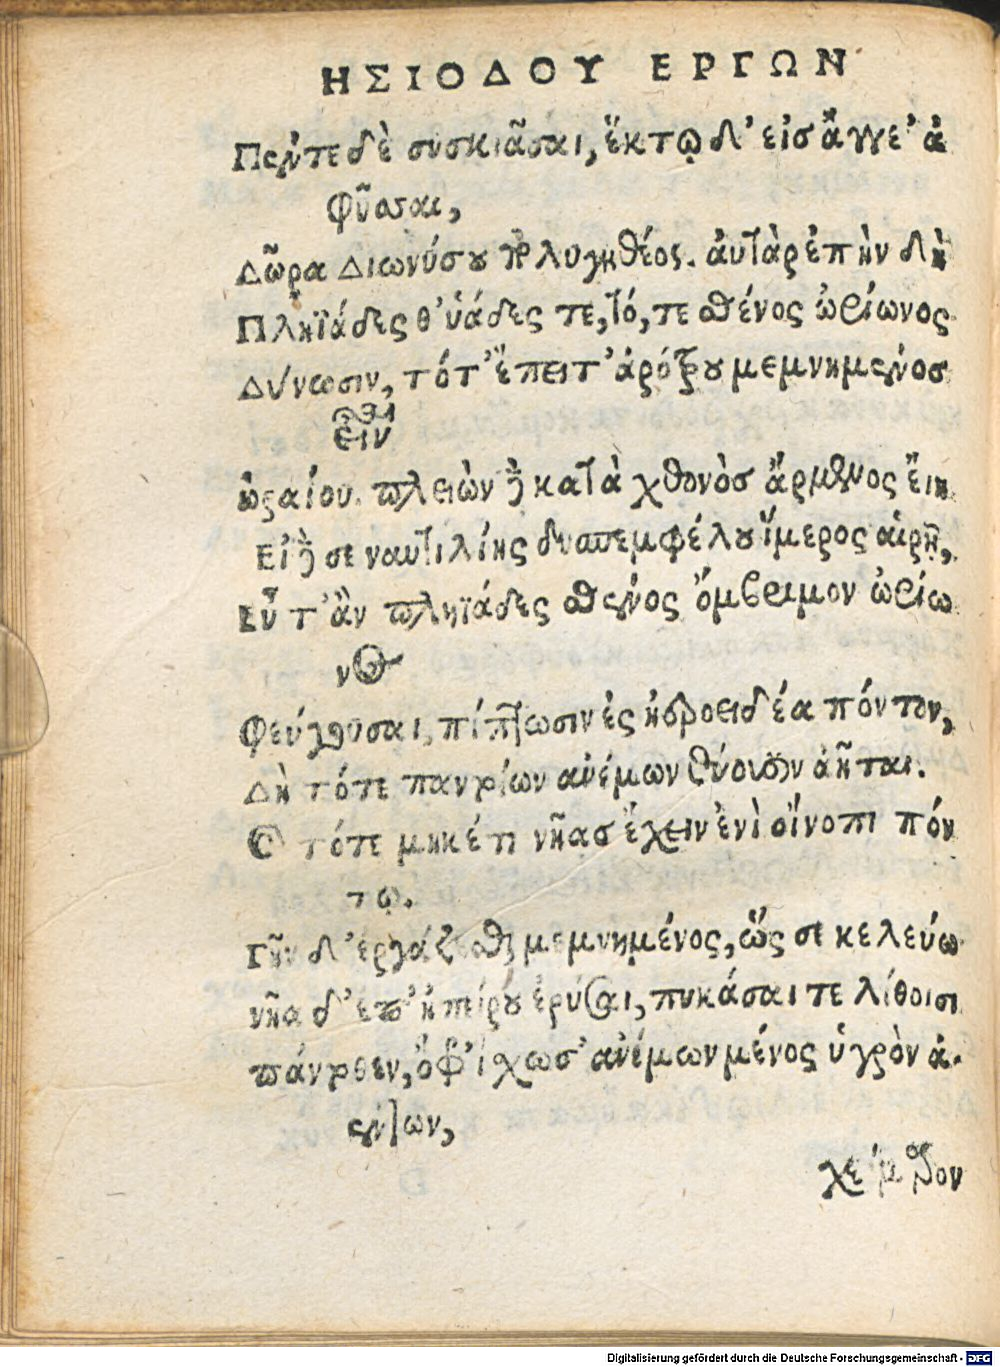 ΗΣΙΟΔΟΥ ΕΡΓΩΝ
Πέντε δὲ συσκιᾶσαι, ἕκτῳ δ' εἰσ ἄγγε' ἀ
φῦσαι,
Δῶρα Διωνύσου πολυγηθέος. ἀυτὰρ ἐπὴν δὴ
Πληϊάδες θ' ὑάδες τε, τό, τε σθένος ὠρίωνος
Δύνωσιν, τότ' ἔπειτ' ἀρότρου μεμνημένοσ
εἶναι
ὡραίου. πλειὼν δὲ κατὰ χθονὸσ ἄρμενος ἔιη.
Εἰ δέ σε ναυτιλίης δυσπεμφέλου ἵμερος αἱρῇ,
Εὖ τ' ἂν πληϊάδες σθένος ὄμβριμον ὠρίω
νος
Φεύγουσαι, πίπτωσιν ἐς ἠεροειδέα πόντον,
Δὴ τότε παντοίων ἀνέμων θύουσιν ἀῆται.
Καὶ τότε μηκέτι νῆασ ἔχειν ἐνὶ οἴνοπι πόν
τῳ.
Γῆν δ' ἐργάζεσθαι μεμνημένος, ὥς σε κελεύω
νῆα δ' ἐπ' ἠπείρου ἐρύσαι, πυκάσαι τε λίθοισι
πάντοθεν, ὄφρ' ἴχωσ' ἀνέμων μένος ὑγρὸν ἀ-
έντων,
χείμαρον
Digitalisierung gefördert durch die Deutsche Forschungsgemeinschaft - DFG